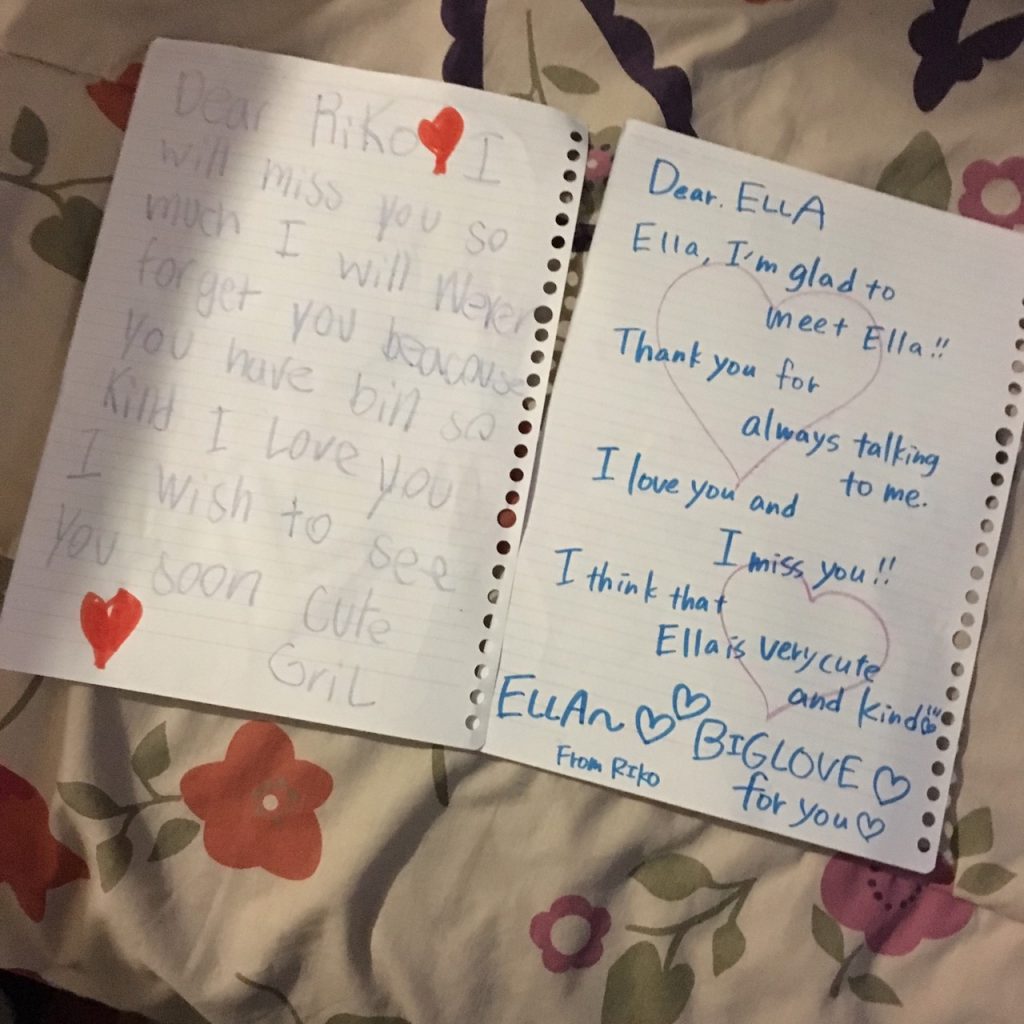 Dear Riko I
will miss you so
much I will Never
forget you beacouse
you have bin so
Kind I Love you
I wish to see
you soon cute
GriL
Dear. ELLA
Ella, I'm glad to
meet Ella!!
Thank you for
always talking
to me.
I love you and
I miss you!!
I think that
Ella is very cute
and kind!!
ELLA~
BIG LOVE
for you
From RIko